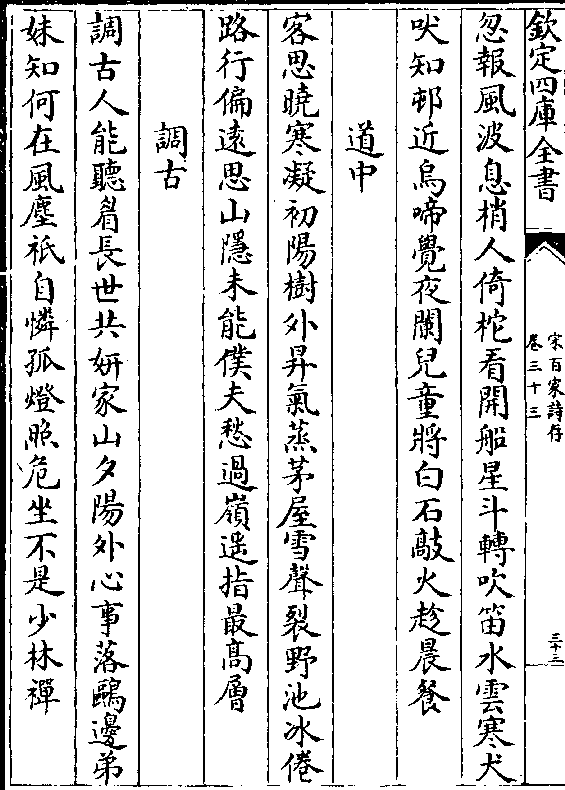 欽定四庫全書
宋百家詩存
卷三十三
三十三
忽報風波息梢人倚柁看開船星斗轉吹笛水雲寒犬
吠知邨近烏啼覺夜闌兒童將白石敲火趁晨餐
道中
客思曉寒凝初陽樹外昇氣蒸茅屋雪聲裂野池冰倦
路行偏遠思山隱未能僕夫愁過嶺遥指最髙層
調古
調古人能聽眉長世共妍家山夕陽外心事落鷗邊弟
妹知何在風塵祇自憐孤燈照危坐不是少林禪